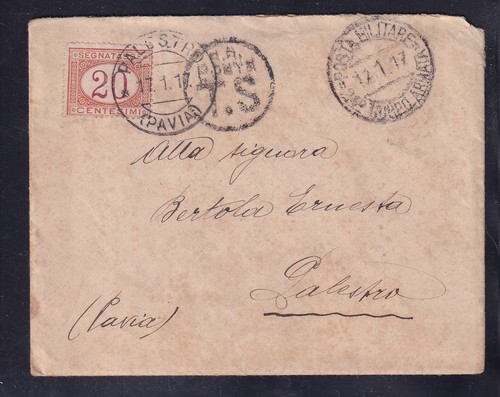 SEGNATASSE
20
CENTESIMI
PALESTRO
17.1.17
(PAVIA)
T.S.
POSTA MILITARE
12.1.17
CORPO ARMATA
Alla signora
Bertola Ernesta
Palestro
(Pavia)